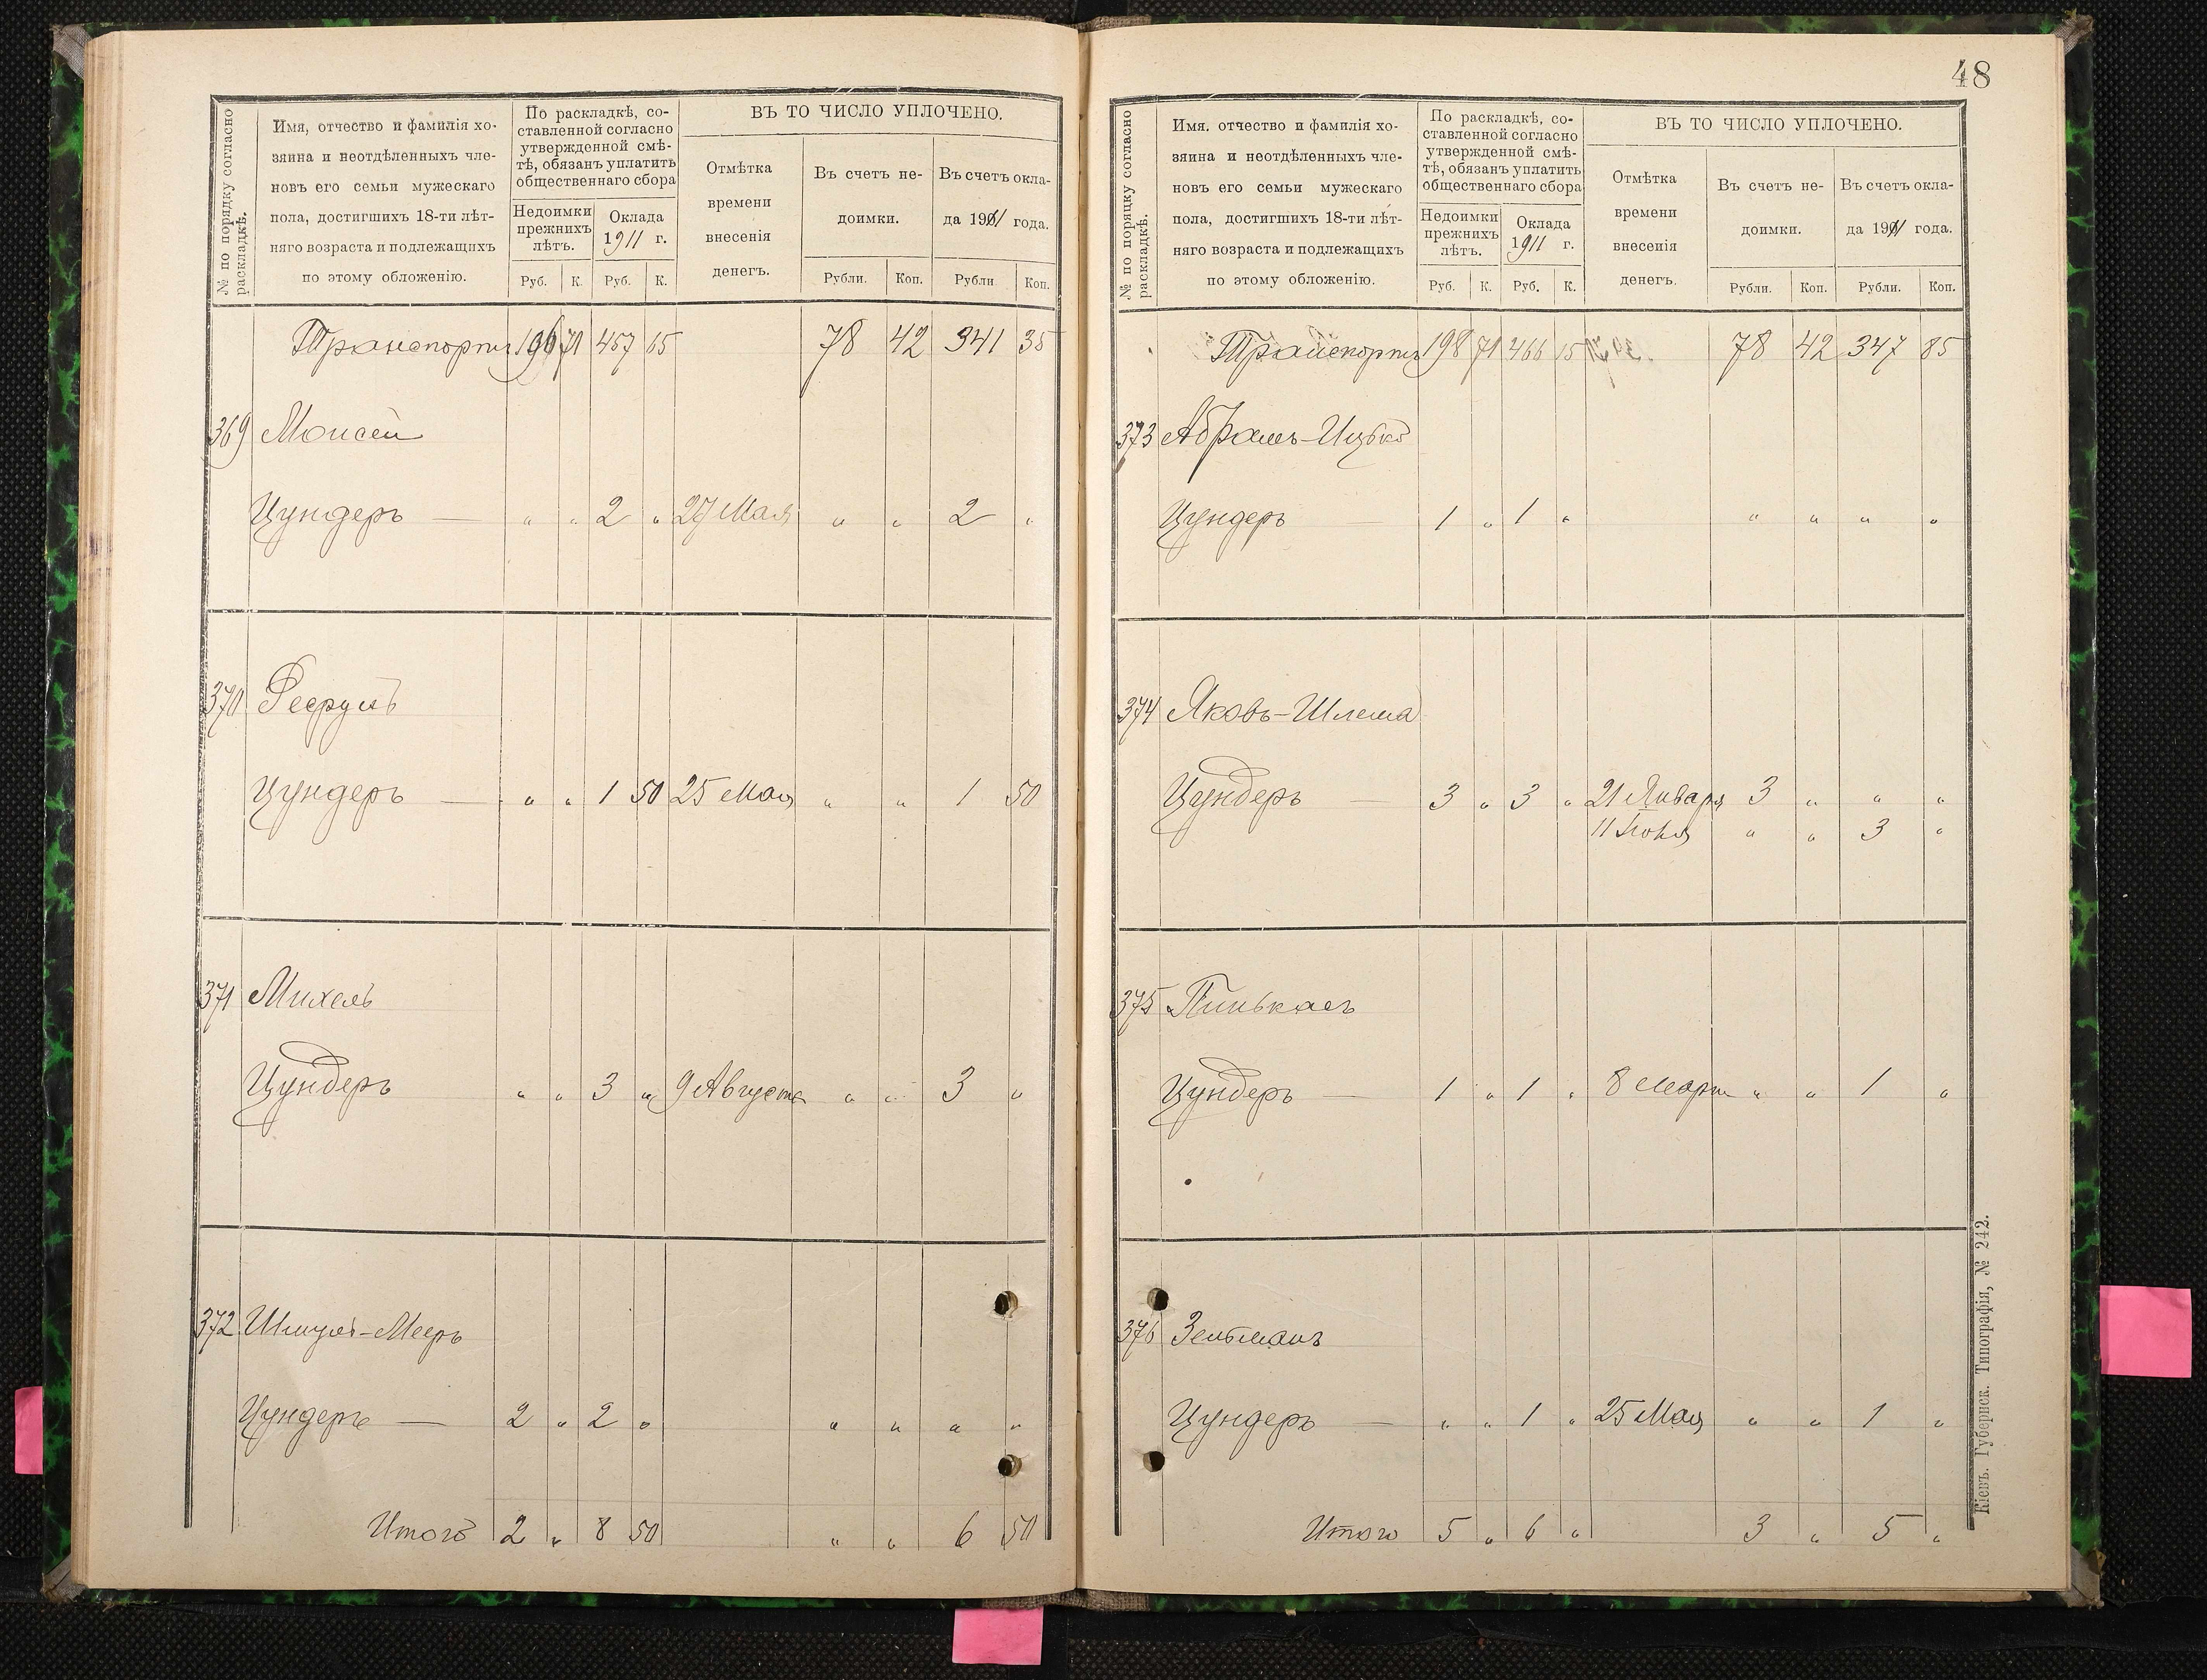 № по порядку согласно раскладкѣ.
Имя, отчество и фамилія хо-
зяина и неотдѣленныхъ чле-
новъ его семьи мужескаго
пола, достигшихъ 18-ти лѣт-
няго возраста и подлежащихъ
по этому обложенію.
По раскладкѣ, со-
ставленной согласно
утвержденной смѣ-
тѣ, обязанъ уплатить
общественнаго сбора
Недоимки прежнихъ лѣтъ.
Оклада 1911 г.
Руб. К. Руб. К.
ВЪ ТО ЧИСЛО УПЛОЧЕНО.
Отмѣтка
времени
внесенія
денегъ.
Въ счетъ не-
доимки.
Въ счетъ окла-
да 1911 года.
Рубли. Коп. Рубли Коп.
Транспортъ 196 71 457 65 78 42 341 35
369 Моисей
Цундеръ — " " 2 " 27 Мая " " 2 "
370
Цундеръ — " " 1 50 25 Мая " " 1 50
371 Михель
Цундеръ " " 3 " 9 Августа " " 3 "
372 Шмуль-Мееръ
Цундеръ — 2 " 2 " " " " "
Итого 2 " 8 50 " " 6 50
48
№ по порядку согласно раскладкѣ.
Имя. отчество и фамилія хо-
зяина и неотдѣленныхъ чле-
новъ его семьи мужескаго
пола, достигшихъ 18-ти лѣт-
няго возраста и подлежащихъ
по этому обложенію.
По раскладкѣ, со-
ставленной согласно
утвержденной смѣ-
тѣ, обязанъ уплатить
общественнаго сбора
Недоимки прежнихъ лѣтъ.
Оклада 1911 г.
Руб. К. Руб. К.
ВЪ ТО ЧИСЛО УПЛОЧЕНО.
Отмѣтка
времени
внесенія
денегъ.
Въ счетъ не-
доимки.
Въ счетъ окла-
да 1911 года.
Рубли. Коп. Рубли. Коп.
Транспортъ 198 71 466 15 78 42 347 85
373 Абрамъ-Ицько
Цундеръ 1 " 1 " " " " "
374 Яковъ-Шлема
Цундеръ — 3 " 3 " 21 Января 3 " " "
11 Іюня " " 3 "
375 Пинькасъ
Цундеръ — 1 " 1 " 8 Марта " " 1 "
376 Зельманъ
Цундеръ — " " 1 " 25 Мая " " 1 "
Итого 5 " 6 " 3 " 5 "
Кіевъ. Губернск. Типографія, № 242.